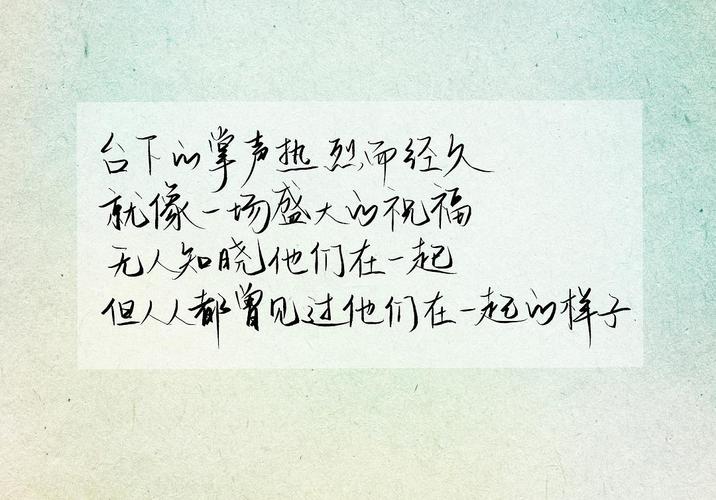 台下的掌声热烈而经久
就像一场盛大的祝福
无人知晓他们在一起
但人人都曾见过他们在一起的样子